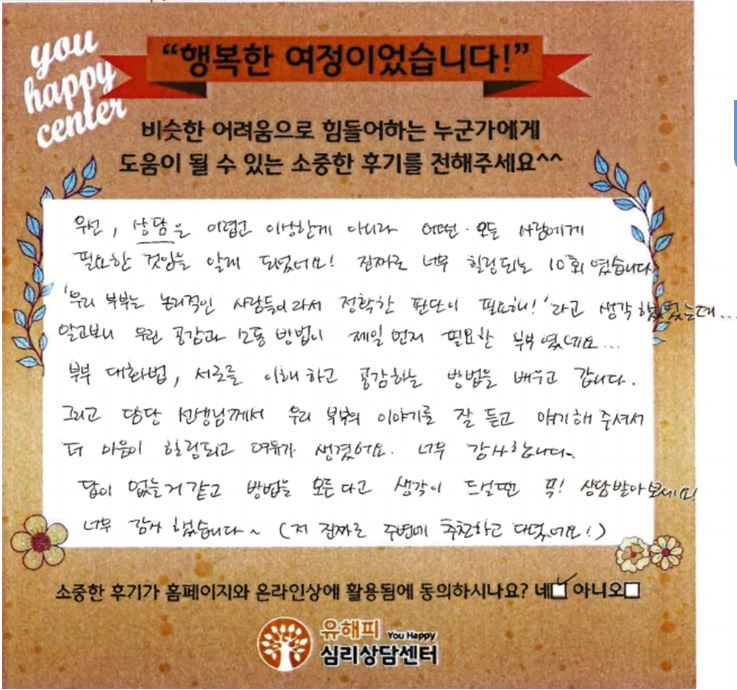 you
happy
center
“행복한 여정이었습니다!”
비슷한 어려움으로 힘들어하는 누군가에게
도움이 될 수 있는 소중한 후기를 전해주세요^^
우선, 상담을 어렵고 이상한게 아니라 어떤·모든 사람에게
필요한 것임을 알게 되었어요! 진짜로 너무 힐링되는 10회 였습니다
'우리 부부는 논리적인 사람들이라서 정확한 판단이 필요해!'라고 생각했었는데...
알고보니 우린 공감과 소통 방법이 제일 먼저 필요한 부부 였네요...
부부 대화법, 서로를 이해하고 공감하는 방법을 배우고 갑니다.
그리고 담당 선생님께서 우리 부부의 이야기를 잘 듣고 얘기해 주셔서
더 마음이 힐링되고 여유가 생겼어요. 너무 감사합니다~
답이 없는거 같고 방법을 모른다고 생각이 드실땐 꼭! 상담받아보세요!
너무 감사 했습니다~ (저 진짜로 주변에 추천하고 다녔어요!)
소중한 후기가 홈페이지와 온라인상에 활용됨에 동의하시나요? 네☑ 아니오☐
유해피 You Happy
심리상담센터